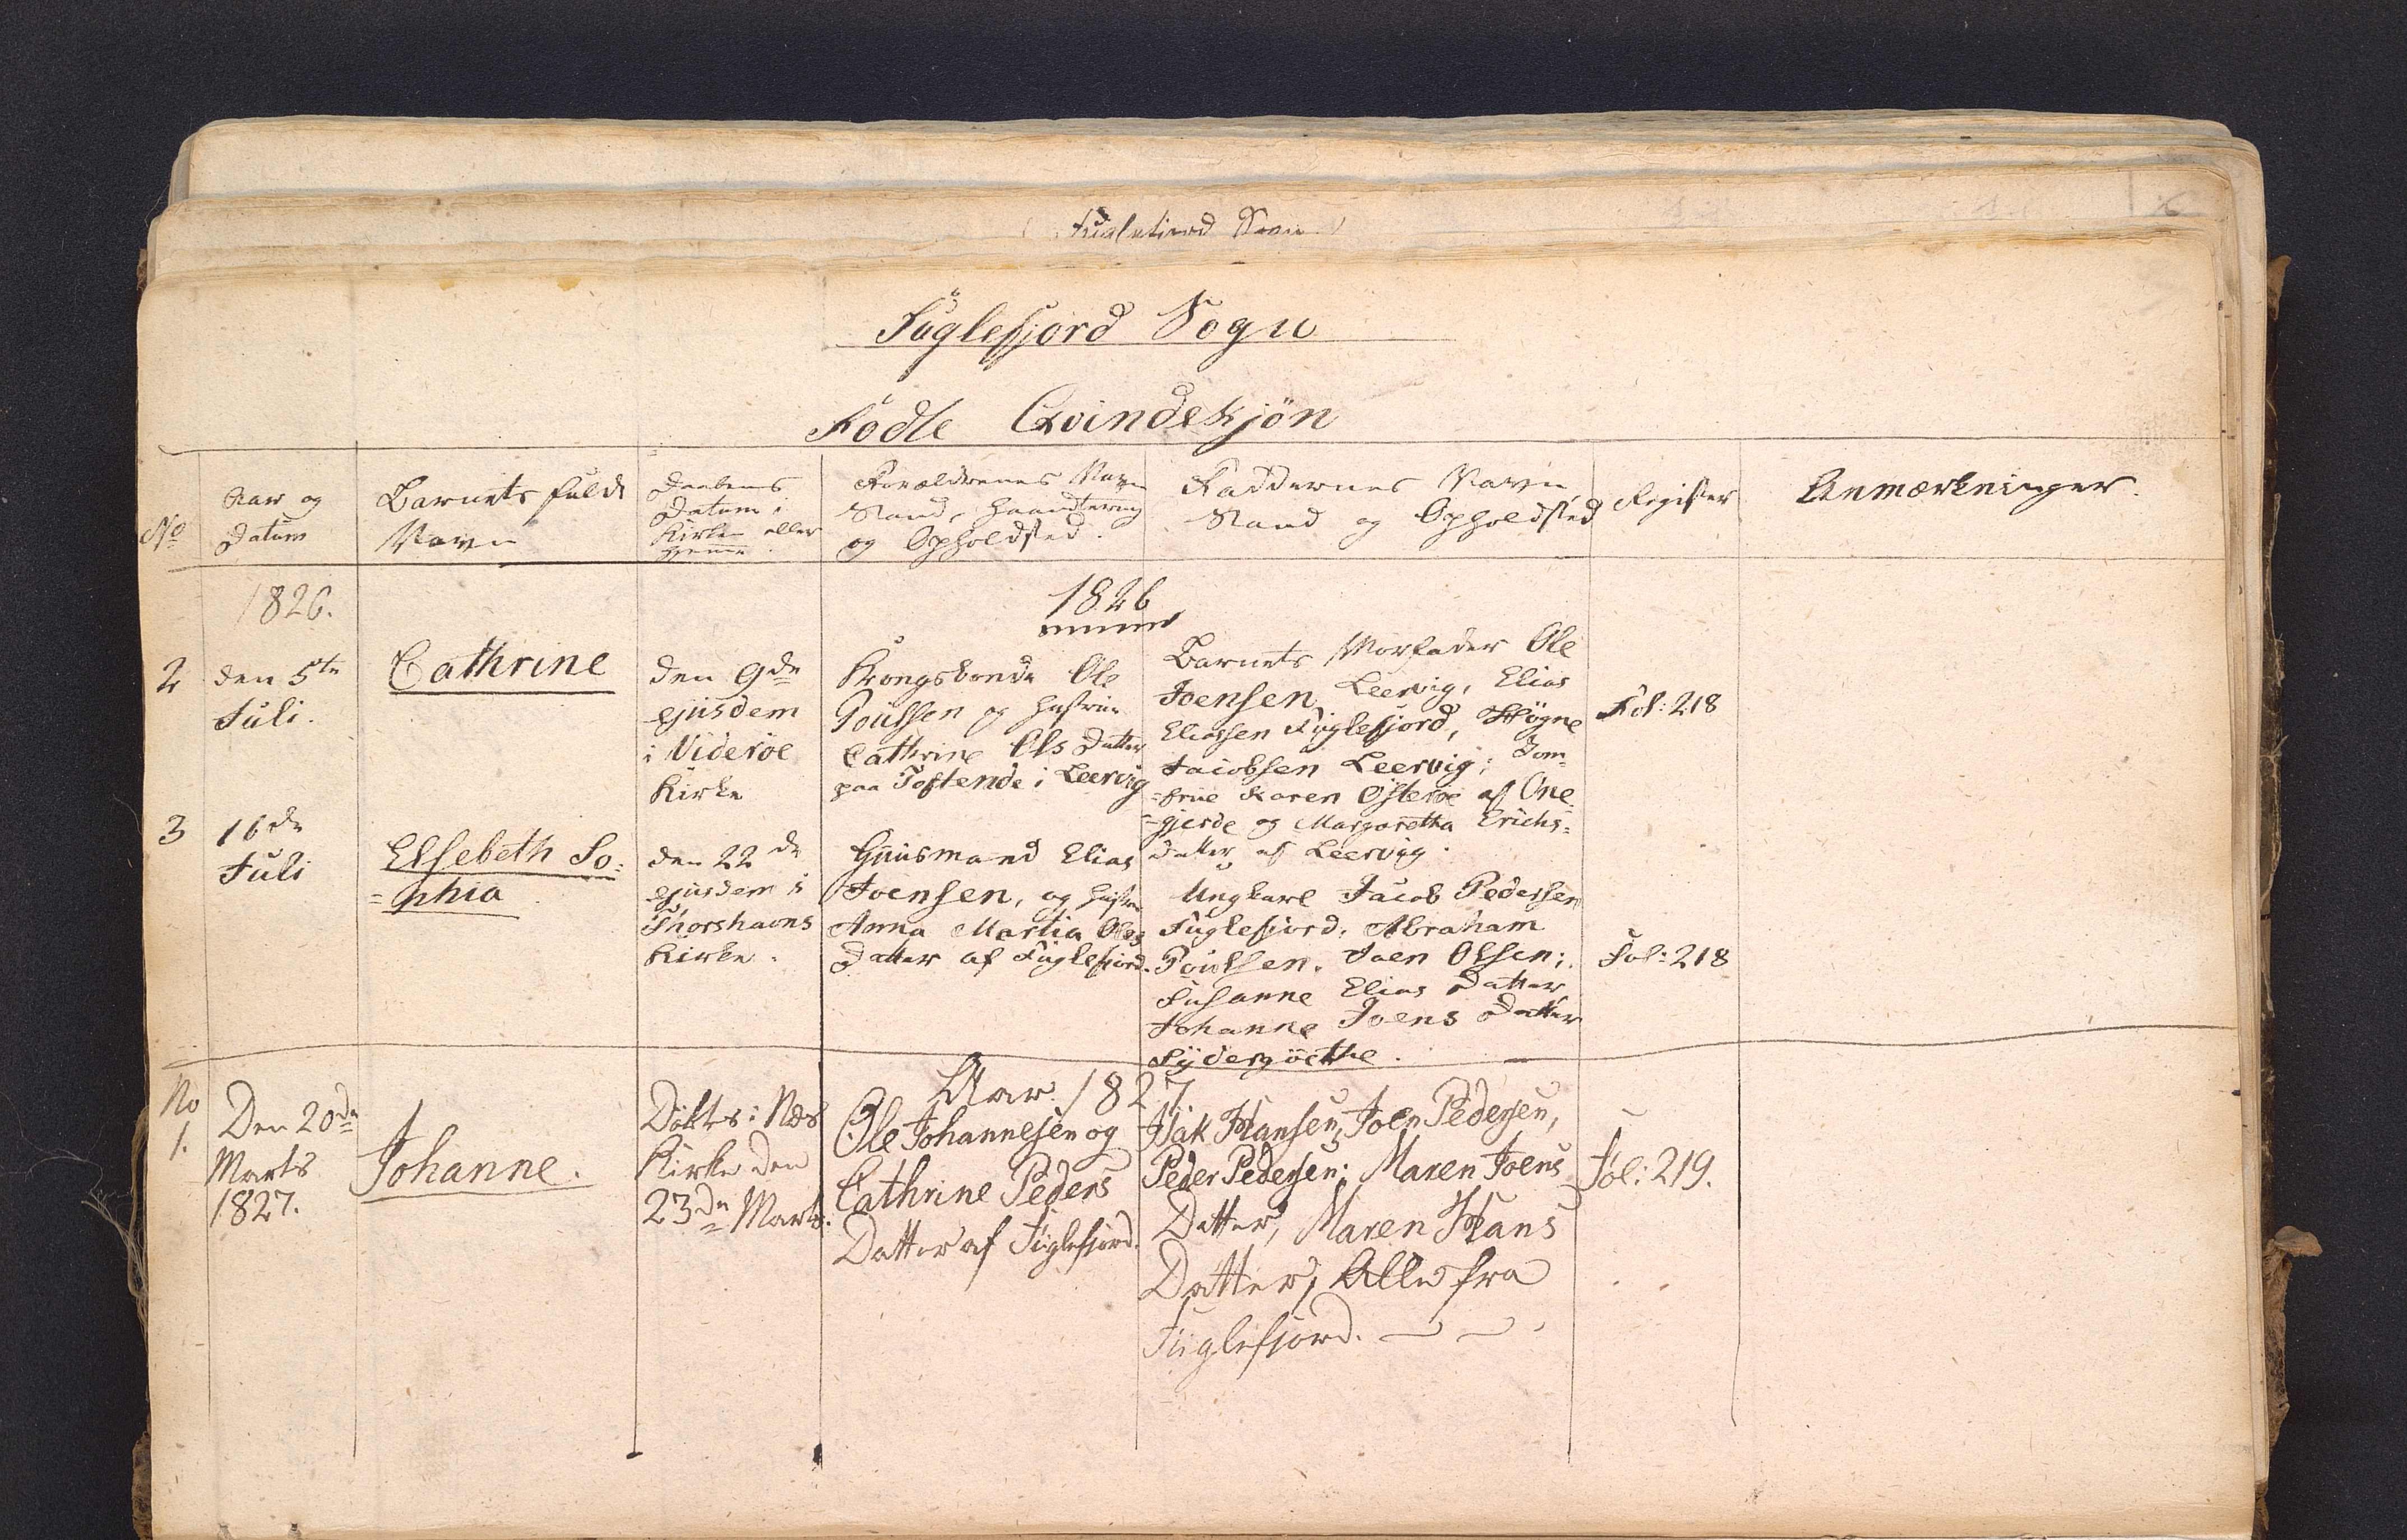 Fuglefjord Sogn
Fuglefjord Sogn
Födte Qvindekjön
No
Aar og
Datum
Barnets fulde
Navn
Daabens
Datum i
Kirke eller
Hjemme
Forældrenes Navn
Stand, Haandtering
og Opholdsted.
Faddernes Navn
Stand og Opholdsted
Register
Anmærkninger.
1826.
1826
2
den 5te
Juli.
Cathrine
den 9de
ejusdem
i Videröe
Kirke
Kongsbonde Ole
Poulsen og Hustrue
Cathrine Ols Datter
paa Toftende i Leervig
Barnets Morfader Ole
Joensen Leervig, Elias
Eliassen Fuglefjord, Högne
Jacobsen Leervig; Jom-
=frue Karen Österöe af One
=gjerde og Margaretha Erichs=
datter af Leervig.
Fol: 218
3
16de
Juli
Elsebeth So=
=phia
den 22de
ejusdem i
Thorshavns
Kirke.
Huusmand Elias
Joensen, og Hustrue
Anna Maria Oles
Datter af Fuglefjord.
Ungkarl Jacob Pedersen
Fuglefjord, Abraham
Poulsen, Joen Olsen;
Susanne Elias Datter
Johanne Joens Datter
Sydergöethe.
Fol: 218
Aar 1827
No
1.
Den 20de
Marts
1827.
Johanne.
Döbt i Nds
Kirke den
23de Marts.
Ole Johannesen og
Cathrine Peders
Datter af Fuglefjord.
Isak Hansen, Joen Pedersen,
Peder Pedersen; Maren Joens
Datter, Maren Hans
Datter, Alle fra
Fuglefjord.
Fol: 219.